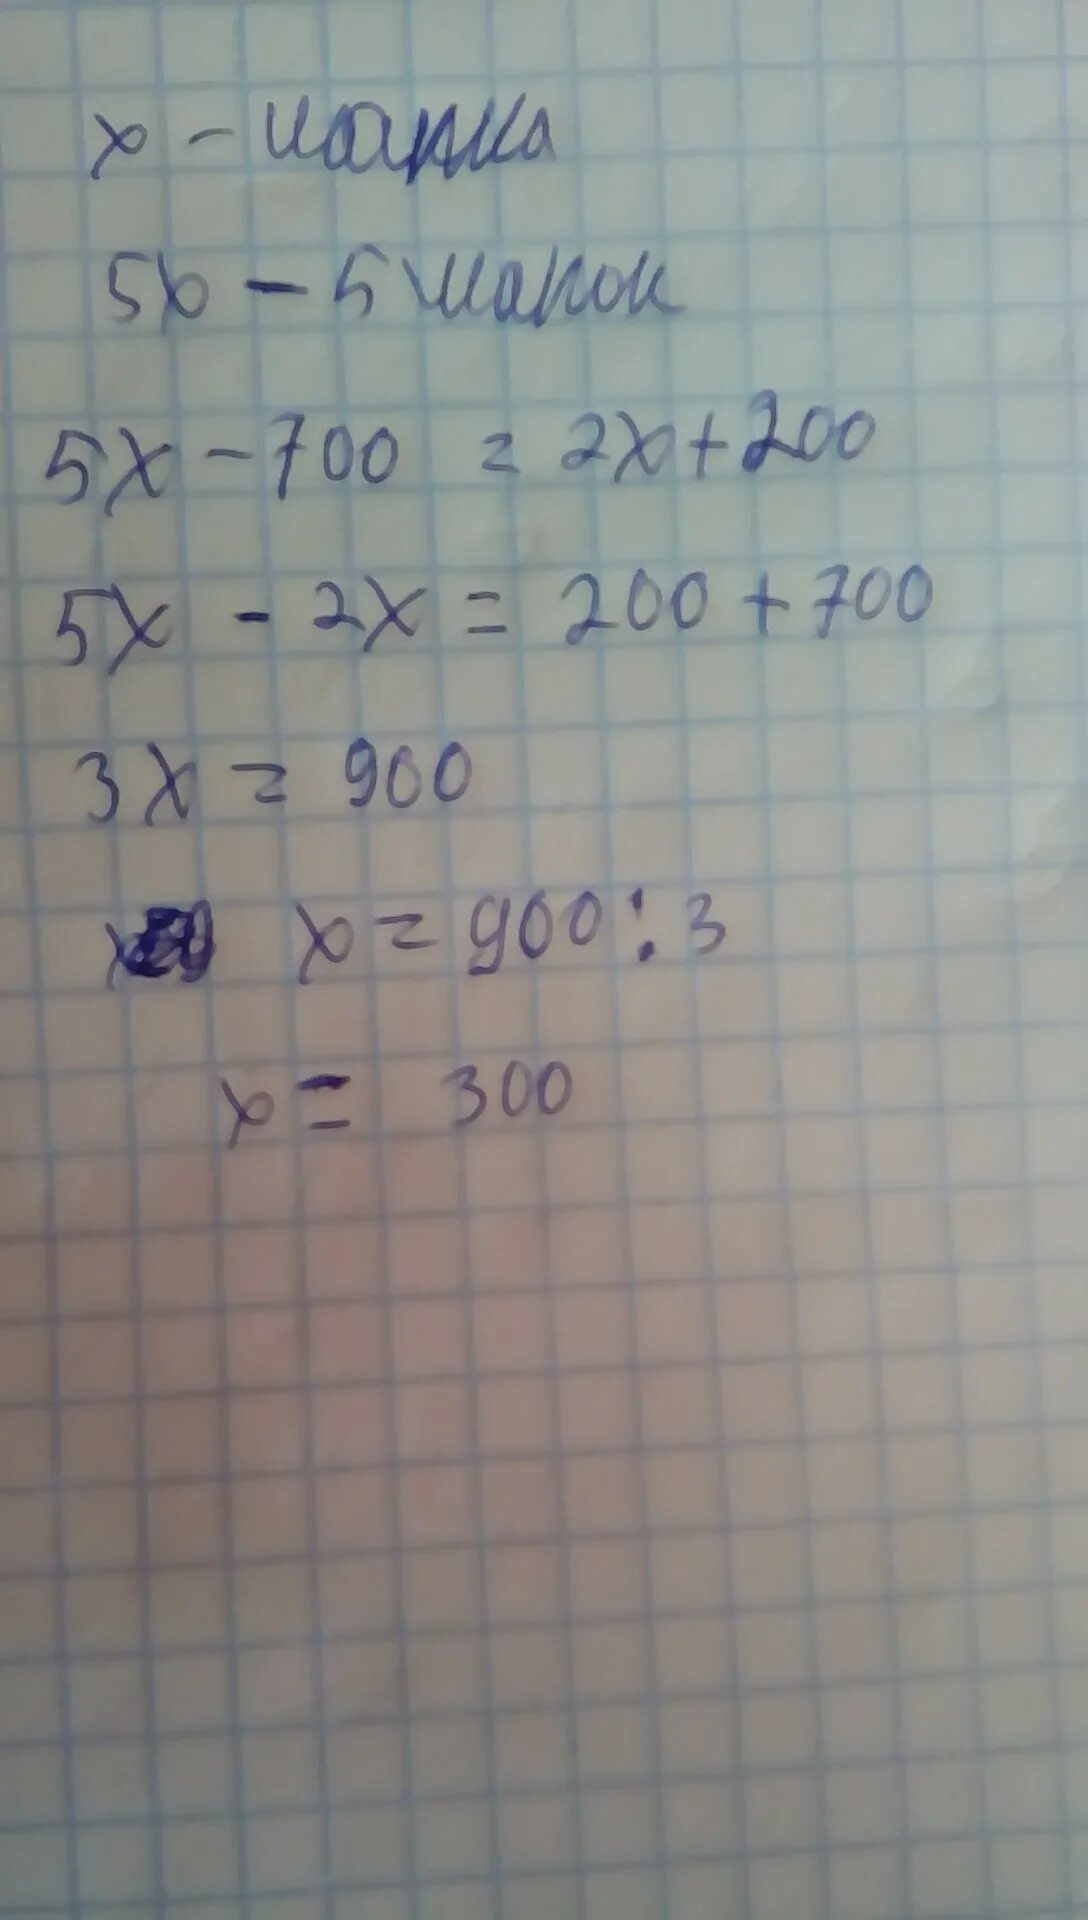 x - шапка
5x - 5 шапок
5x - 700 = 2x + 200
5x - 2x = 200 + 700
3x = 900
x = 900 : 3
x = 300